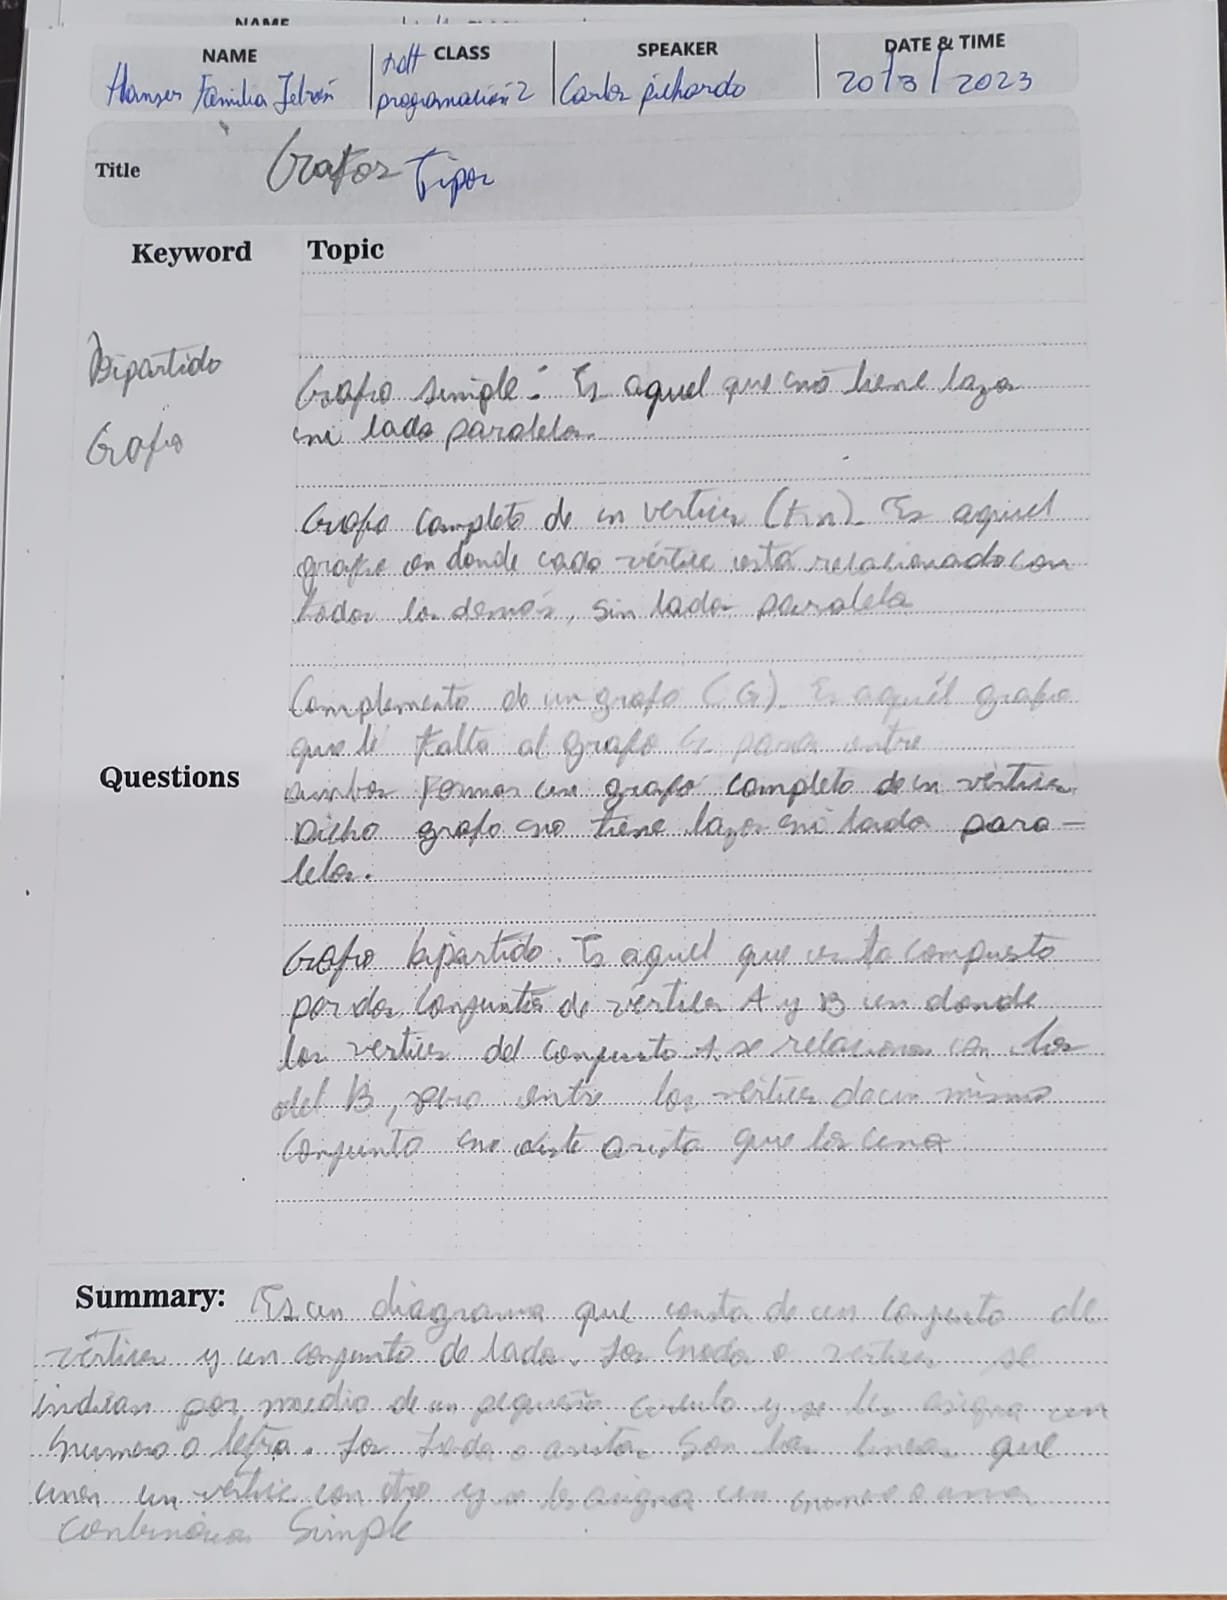 NAME
NAME CLASS SPEAKER DATE & TIME
Familia programación 2 Carlos pichardo 20/3/2023
Title Grafos Tipos
Keyword Topic
Bipartido
Grafo simple: Es aquel que no tiene lazos
Grafo
ni lado paralelos.
Grafo completo de n vertices (Kn). Es aquel
grafo en donde cada vértice está relacionado con
todos los demás, sin lados paralelos
Complemento de un grafo (G). Es aquél grafo
que le falta al grafo G para entre
Questions
ambos formar un grafo completo de n vértices.
Dicho grafo no tiene lazos ni lados para-
lelos.
Grafo bipartido. Es aquel que esta compuesto
por dos conjuntos de vértices A y B en donde
los vertices del conjunto A se relacionan con los
del B, pero entre los vértices de un mismo
conjunto no existe arista que los una
Summary: Es un diagrama que consta de un conjunto de
vértices y un conjunto de lados. Los nodos o vertices se
indican por medio de un pequeño circulo y se les asigna un
numero o letra. Los lados o aristas son las lineas que
unen un vértice con otro y se les asigna un numero o una
Simple